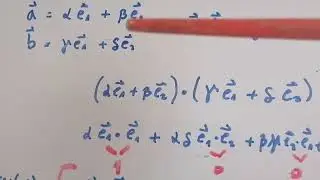 a⃗ = αe⃗₁ + βe⃗₂
b⃗ = γe⃗₁ + δe⃗₂
(αe⃗₁ + βe⃗₂) · (γe⃗₁ + δe⃗₂)
α e⃗₁ · e⃗₁ + αδ e⃗₁ · e⃗₂ + βγ e⃗₂ · e⃗₁ +
1 0 0